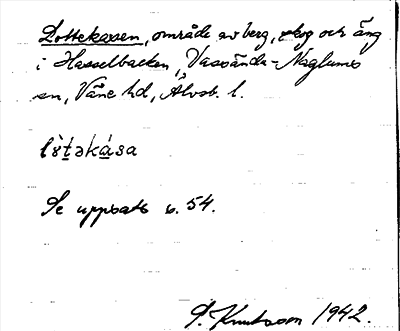 Lottekasen, område av berg, skog och äng
i Hasselbacken, Vassända-Naglums
sn, Väne hd, Älvsb. l.
lòtəkása
Se uppsats s. 54.
S. Knutsson 1942.